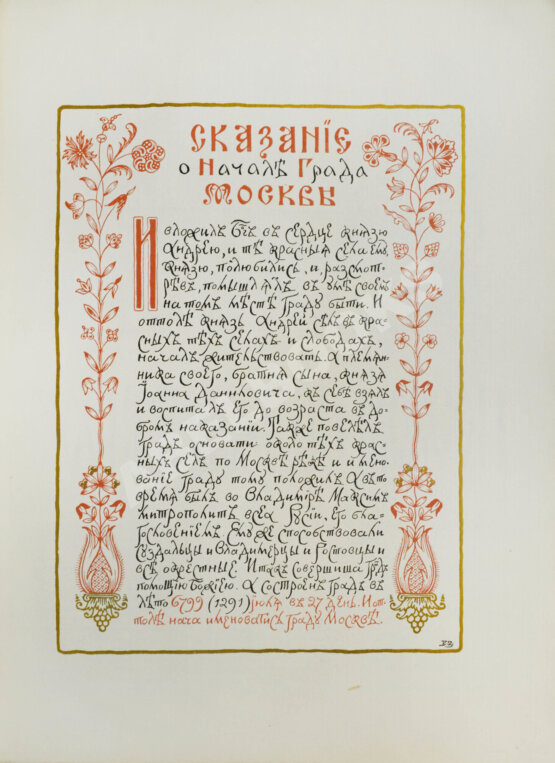 СКАЗАНІЕ
о Началѣ Града
МОСКВЫ
И вложилъ Бгъ въ сердце князю
Андрею, и тѣ красныя села ему,
князю, полюбились, и, размот-
рѣвъ, помышлялъ въ умѣ своемъ
на томъ мѣстѣ Граду быти. И
оттолѣ князь Андрей сѣлъ въ крас-
ныхъ тѣхъ селахъ и слободахъ,
началъ жительствовать. А племян-
ника своего, братня сына, князя
Іоанна Даниловича, къ себѣ взялъ
и воспиталъ его до возраста въ до-
бромъ наказаніи. Также повелѣлъ
Градъ основати около тѣхъ крас-
ныхъ селъ по Москвѣ рѣкѣ и имено-
ваніе Граду тому положилъ. А въ то
время былъ во Владимірѣ Максимъ
митрополитъ всея Русіи, его бла-
гословеніемъ. Ему же способствовали
Суздальцы и Владимерцы и Ростовцы и
всѣ окрестные. И такъ совершиша Градъ
помощію Божіею. А состроенъ Градъ въ
лѣто 6799 (1291) іюля въ 27 день. И от-
толѣ нача именоватися Граду Москвѣ.